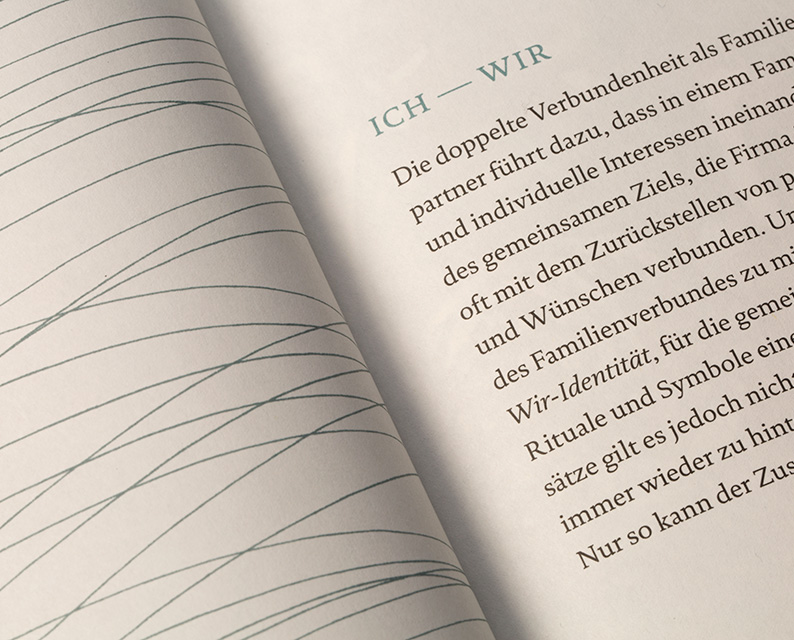 ICH — WIR
Die doppelte Verbundenheit als Familie
partner führt dazu, dass in einem Fam
und individuelle Interessen ineinand
des gemeinsamen Ziels, die Firma
oft mit dem Zurückstellen von p
und Wünschen verbunden. Un
des Familienverbundes zu mi
Wir-Identität, für die gemei
Rituale und Symbole eine
sätze gilt es jedoch nicht
immer wieder zu hint
Nur so kann der Zus